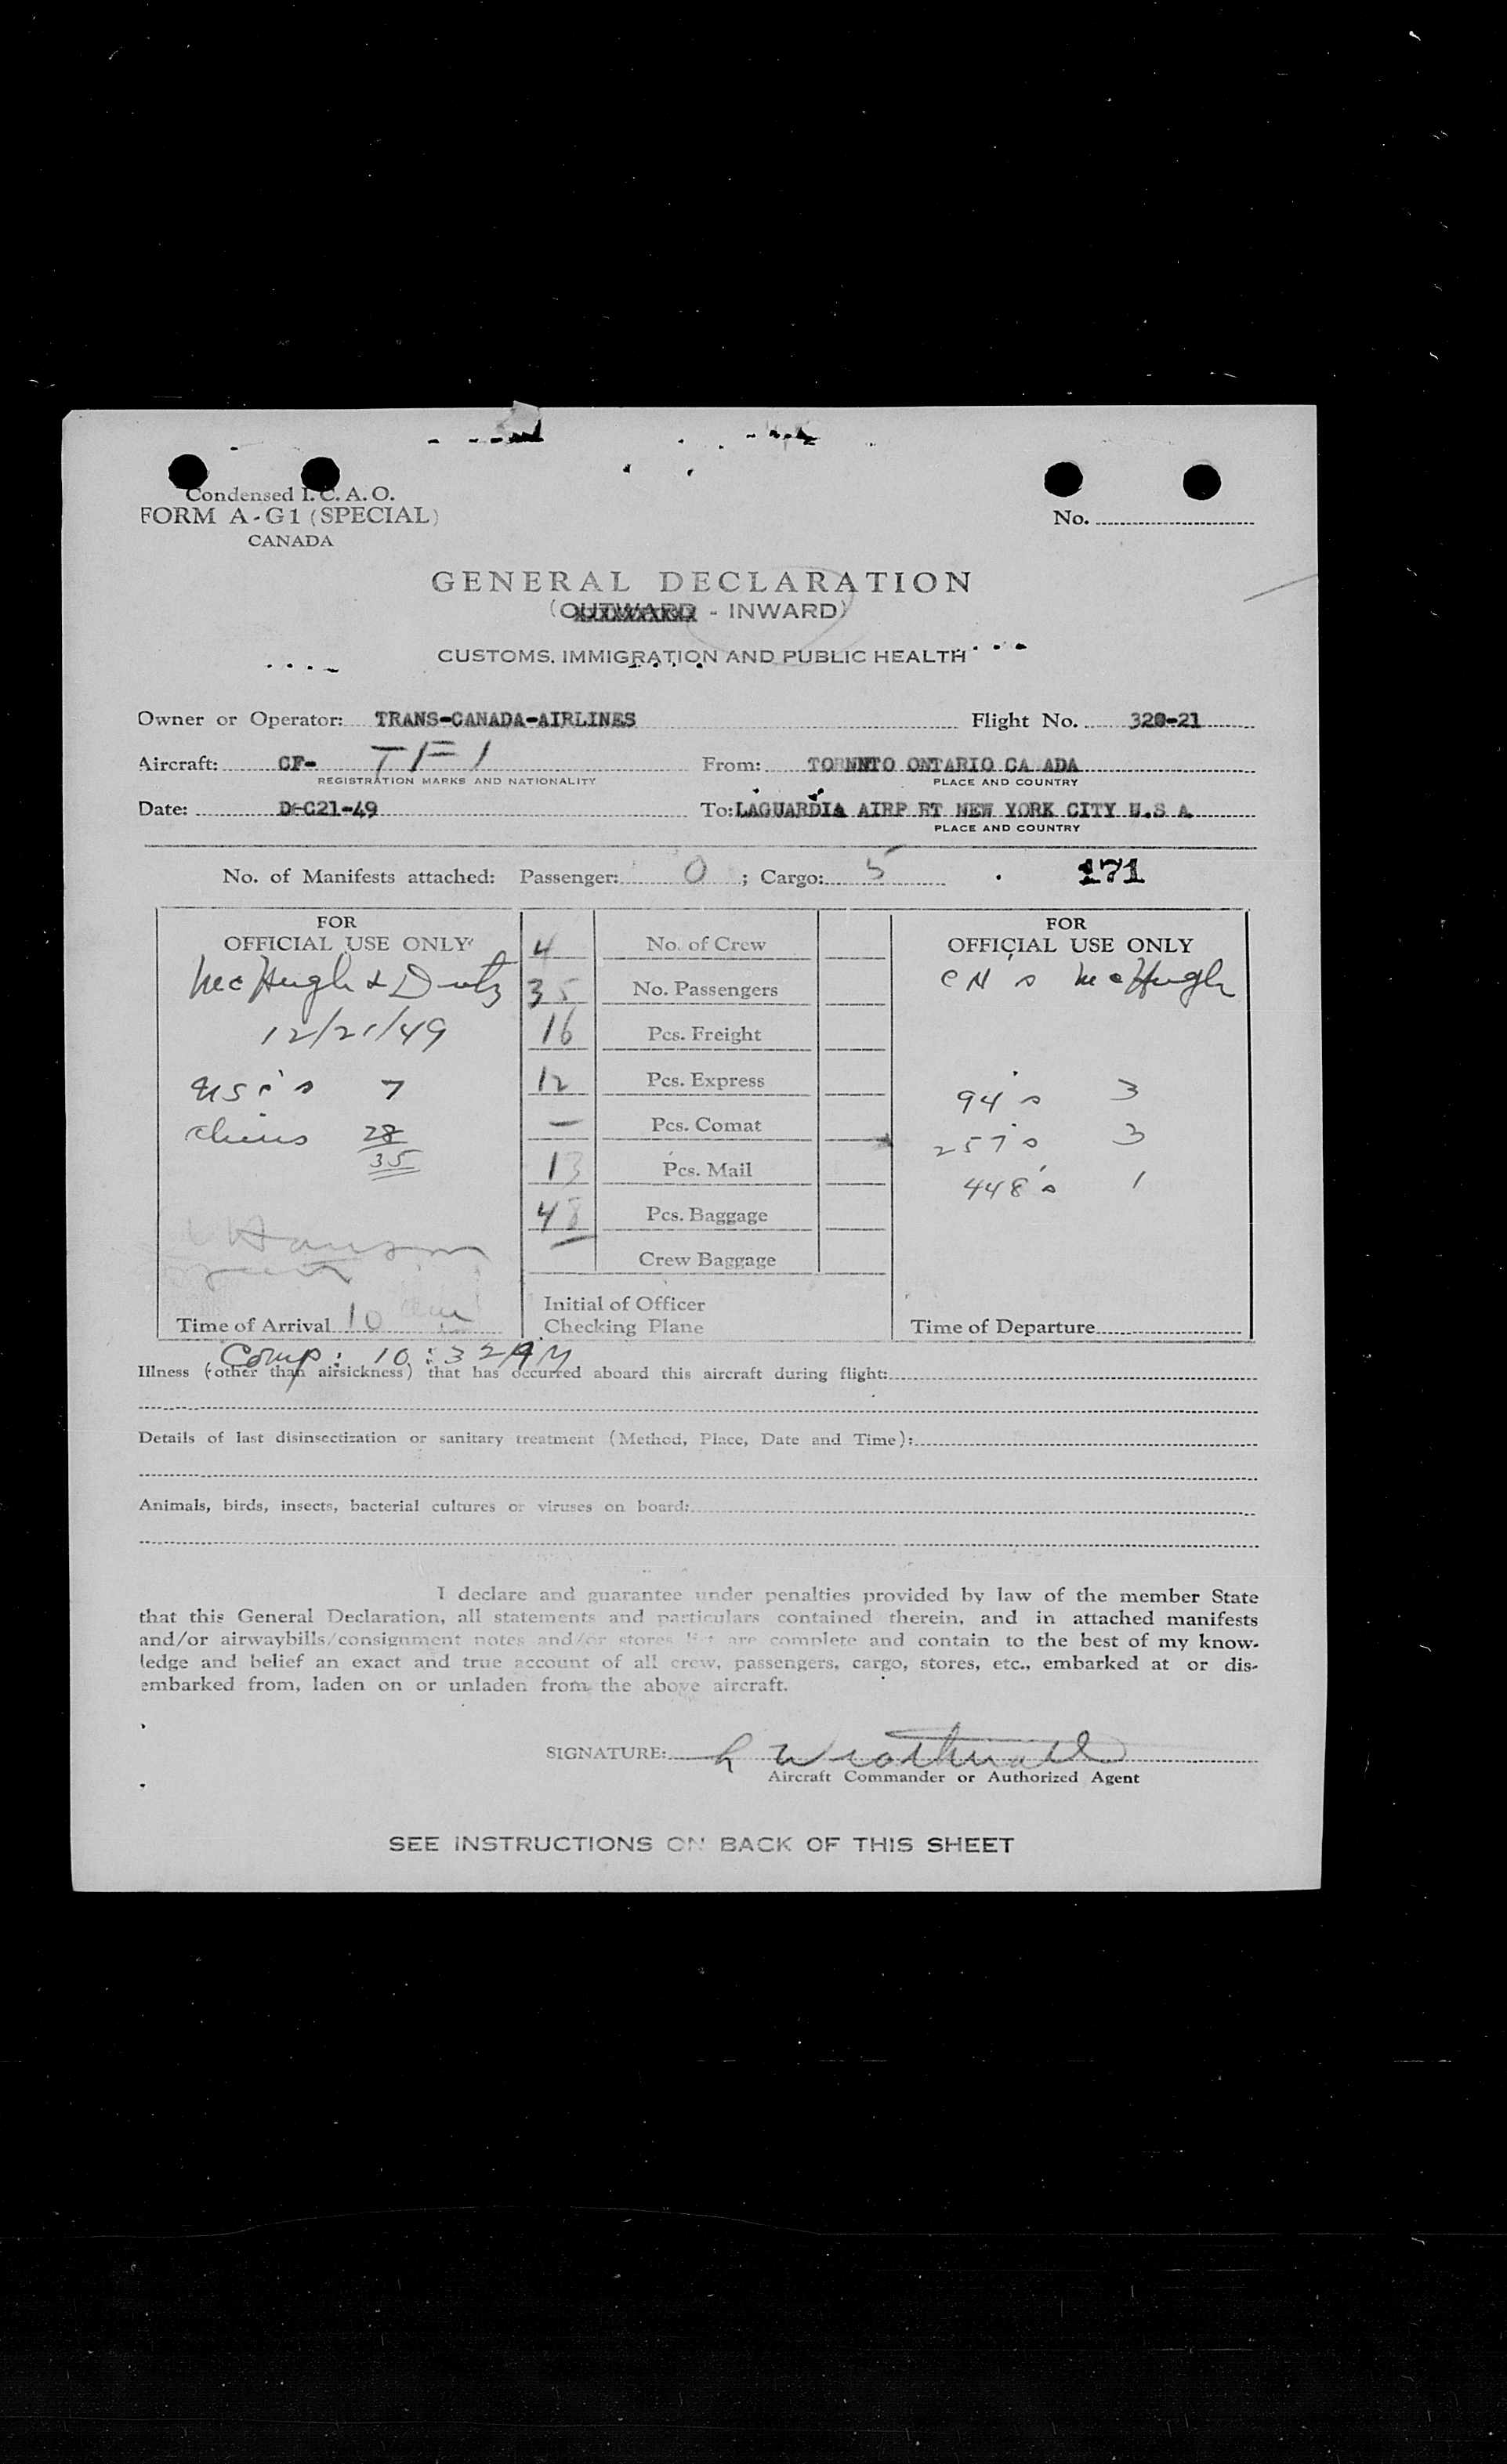 Condensed I.C.A.O.
FORM A-G1 (SPECIAL)
CANADA
No.
GENERAL DECLARATION
(OUTWARD - INWARD)
CUSTOMS, IMMIGRATION AND PUBLIC HEALTH
Owner or Operator: TRANS-CANADA-AIRLINES Flight No. 320-21
Aircraft: CF- TFI From: TORNNTO ONTARIO CA ADA
REGISTRATION MARKS AND NATIONALITY PLACE AND COUNTRY
Date: DEC21-49 To: LAGUARDIA AIRP RT NEW YORK CITY U.S A
PLACE AND COUNTRY
No. of Manifests attached: Passenger: 0 ; Cargo: 5 171
FOR
OFFICIAL USE ONLY
McHugh &
12/21/49
USC's 7
aliens 28
35
Time of Arrival 10
4 No. of Crew
35 No. Passengers
16 Pcs. Freight
12 Pcs. Express
— Pcs. Comat
13 Pcs. Mail
48 Pcs. Baggage
— Crew Baggage
Initial of Officer
Checking Plane
FOR
OFFICIAL USE ONLY
McHugh
94's 3
257's 3
448's 1
Time of Departure
Comp: 10:32AM
Illness (other than airsickness) that has occurred aboard this aircraft during flight:
Details of last disinsectization or sanitary treatment (Method, Place, Date and Time):
Animals, birds, insects, bacterial cultures or viruses on board:
I declare and guarantee under penalties provided by law of the member State
that this General Declaration, all statements and particulars contained therein, and in attached manifests
and/or airwaybills/consignment notes and/or stores list are complete and contain to the best of my know-
ledge and belief an exact and true account of all crew, passengers, cargo, stores, etc., embarked at or dis-
embarked from, laden on or unladen from the above aircraft.
SIGNATURE:
Aircraft Commander or Authorized Agent
SEE INSTRUCTIONS ON BACK OF THIS SHEET